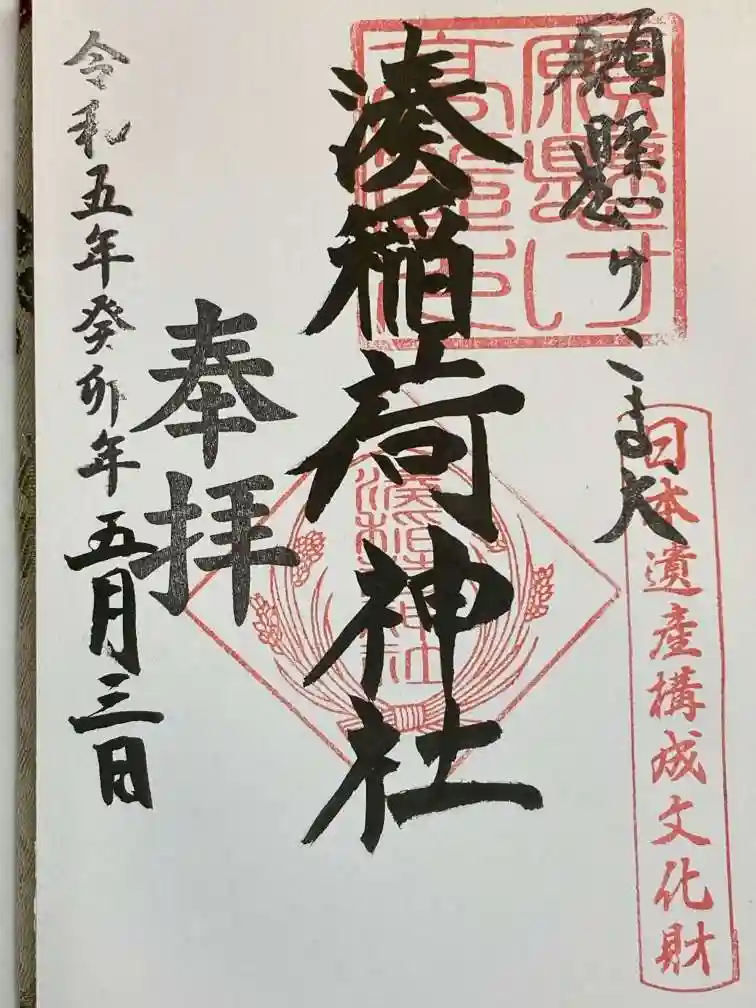 願懸けこま犬
日本遺産構成文化財
願懸け
湊稲荷神社
湊稲荷神社
奉拝
令和五年癸卯年五月三日